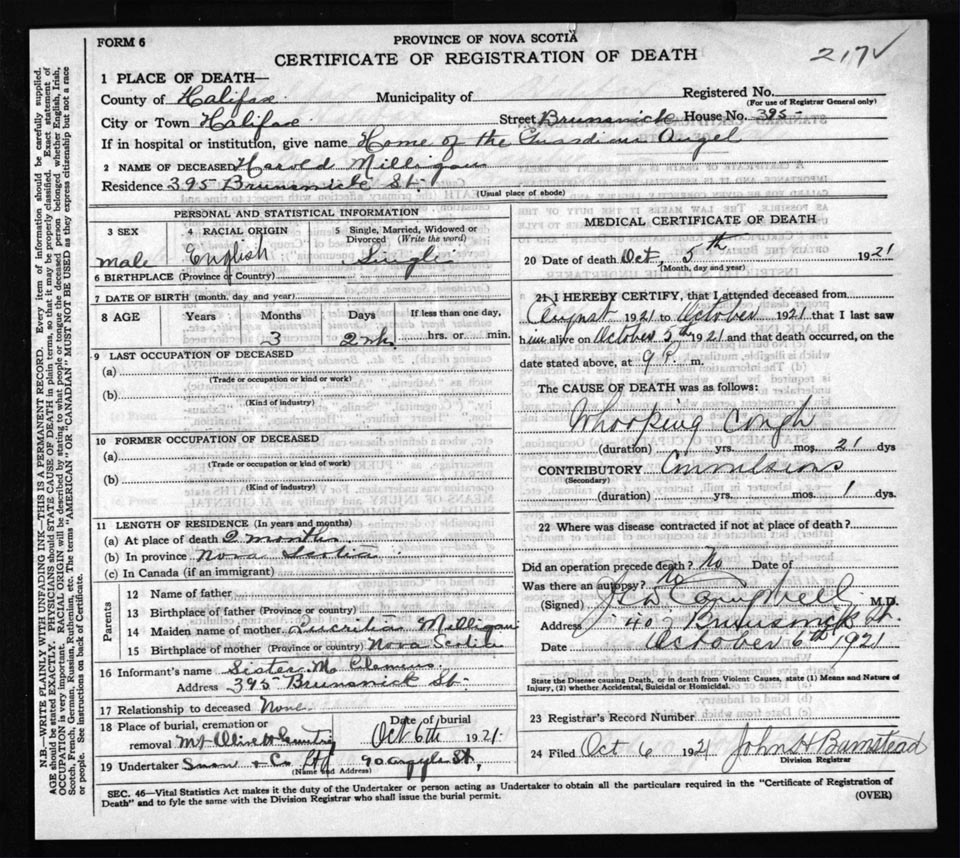 FORM 6
PROVINCE OF NOVA SCOTIA
CERTIFICATE OF REGISTRATION OF DEATH
217 √
1 PLACE OF DEATH—
County of Halifax Municipality of Registered No.
(For use of Registrar General only)
City or Town Halifax Street Brunswick House No. 395
If in hospital or institution, give name Home of the Guardian Angel
2 NAME OF DECEASED Harold Milligan
Residence 395 Brunswick St.
(Usual place of abode)
PERSONAL AND STATISTICAL INFORMATION
3 SEX 4 RACIAL ORIGIN 5 Single, Married, Widowed or Divorced (Write the word)
Male English Single
6 BIRTHPLACE (Province or Country)
7 DATE OF BIRTH (month, day and year)
8 AGE Years Months Days If less than one day,
3 2 wks hrs. or min.
9 LAST OCCUPATION OF DECEASED
(a)
(Trade or occupation or kind or work)
(b)
(Kind of industry)
10 FORMER OCCUPATION OF DECEASED
(a)
(Trade or occupation or kind of work)
(b)
(Kind of industry)
11 LENGTH OF RESIDENCE (In years and months)
(a) At place of death 2 months
(b) In province Nova Scotia
(c) In Canada (if an immigrant)
Parents
12 Name of father
13 Birthplace of father (Province or country)
14 Maiden name of mother Lucritia Milligan
15 Birthplace of mother (Province or country) Nova Scotia
16 Informant's name Sister M. Clemens
Address 395 Brunswick St
17 Relationship to deceased None
18 Place of burial, cremation or Date of burial
removal Mt Olivett Cemetry Oct 6th 1921
19 Undertaker Snow & Co Ltd 90 Argyle St,
(Name and Address)
MEDICAL CERTIFICATE OF DEATH
20 Date of death Oct, 5th 1921
(Month, day and year)
21 I HEREBY CERTIFY, that I attended deceased from
August 1921 to October 1921 that I last saw
him alive on October 5th 1921 and that death occurred, on the
date stated above, at 9 P. m.
The CAUSE OF DEATH was as follows:
Whooping Cough
(duration) yrs. mos. 21 dys
CONTRIBUTORY Convulsions
(Secondary)
(duration) yrs. mos. 1 dys.
22 Where was disease contracted if not at place of death?
Did an operation precede death? No Date of
Was there an autopsy? No
(Signed) Campbell M.D.
Address 407 Brunswick St.
Date October 6th 1921
State the Disease causing Death, or in death from Violent Causes, state (1) Means and Nature of
Injury, (2) whether Accidental, Suicidal or Homicidal.
23 Registrar's Record Number
24 Filed Oct 6 1921 John H Barnstead
Division Registrar
SEC. 46—Vital Statistics Act makes it the duty of the Undertaker or person acting as Undertaker to obtain all the particulars required in the "Certificate of Registration of
Death" and to fyle the same with the Division Registrar who shall issue the burial permit.
(OVER)
N.B—WRITE PLAINLY WITH UNFADING INK—THIS IS A PERMANENT RECORD. Every item of information should be carefully supplied.
AGE should be stated EXACTLY. PHYSICIANS should STATE CAUSE OF DEATH in plain terms, so that it may be properly classified. Exact statement of
OCCUPATION is very important. RACIAL ORIGIN will be described by stating to what people or tongue the deceased person belonged whether English, Irish,
Scotch, French, German, Russian, Ruthenian, etc. The terms "AMERICAN" OR "CANADIAN" MUST NOT BE USED as they express citizenship but not a race
or people. See instructions on back of Certificate.